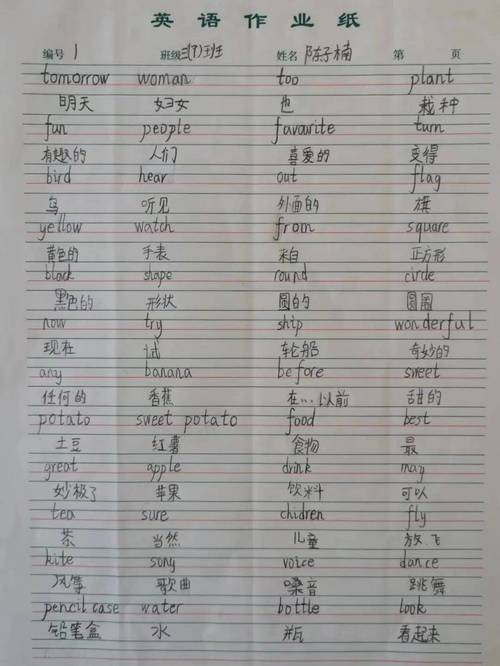 英语作业纸
编号 1 班级 三(7)班 姓名 陈子楠 第 页
tomorrow woman too plant
明天 妇女 也 栽种
fun people favourite turn
有趣的 人们 喜爱的 变得
bird hear out flag
鸟 听见 外面的 旗
yellow watch from square
黄色的 手表 来自 正方形
black shape round circle
黑色的 形状 圆的 圆圈
now try ship wonderful
现在 试 轮船 奇妙的
any banana before sweet
任何的 香蕉 在...以前 甜的
potato sweet potato food best
土豆 红薯 食物 最
great apple drink may
妙极了 苹果 饮料 可以
tea sure chidren fly
茶 当然 儿童 放飞
kite sony voice dance
风筝 歌曲 嗓音 跳舞
pencil case water bottle look
铅笔盒 水 瓶 看起来